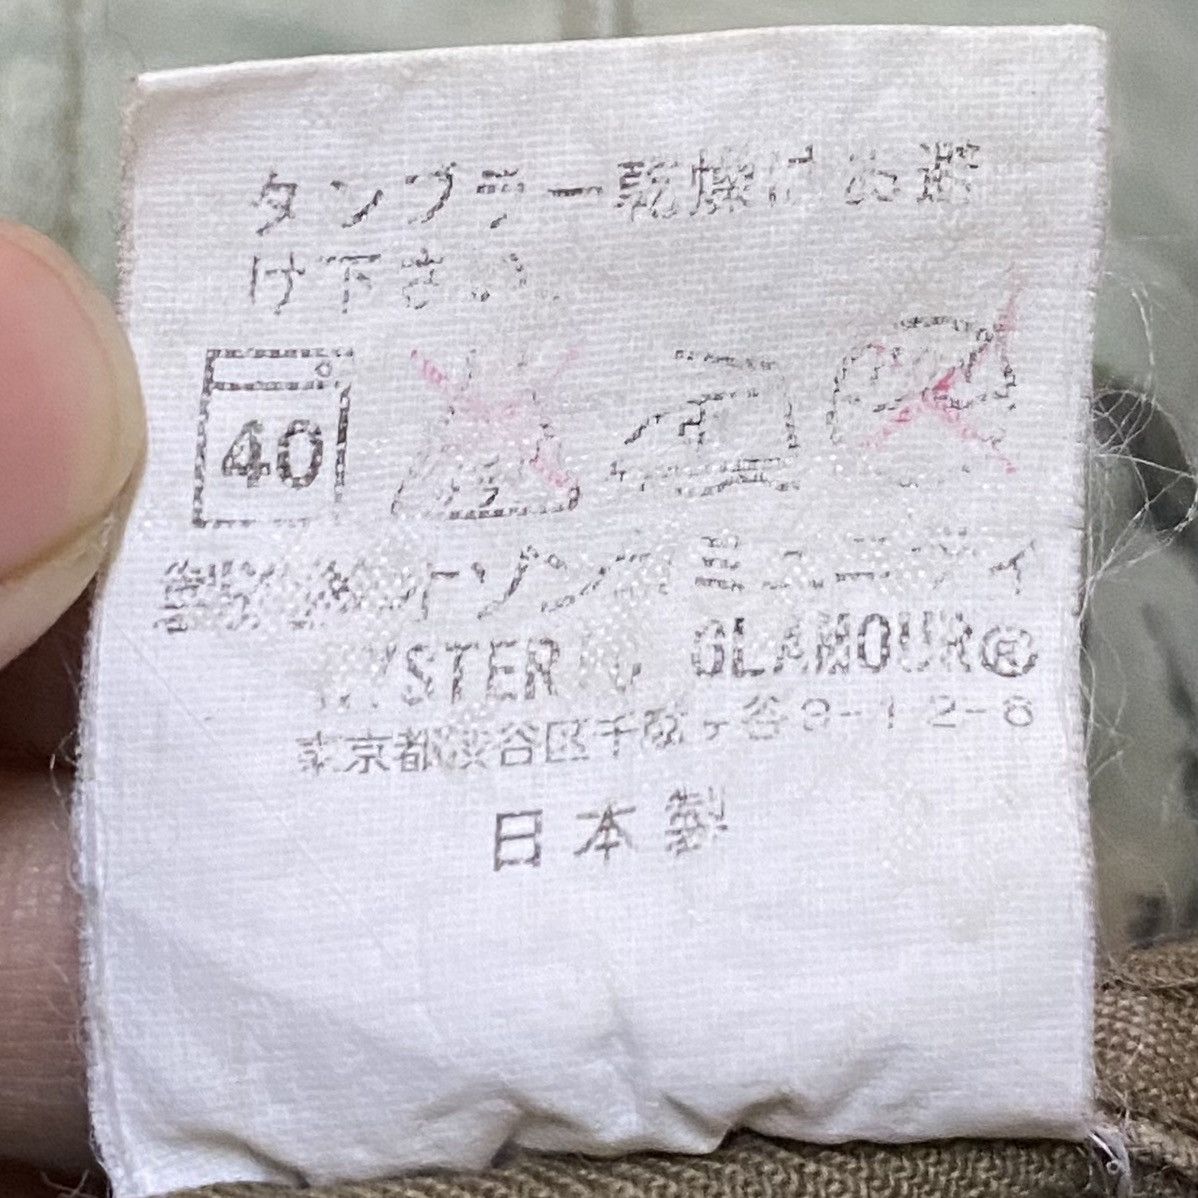 タンブラー乾燥はお避
け下さい。
40
エンソ
中
ドライ
㈱オゾンコミュニティ
HYSTERIC GLAMOUR®
東京都渋谷区千駄ヶ谷3-12-8
日本製